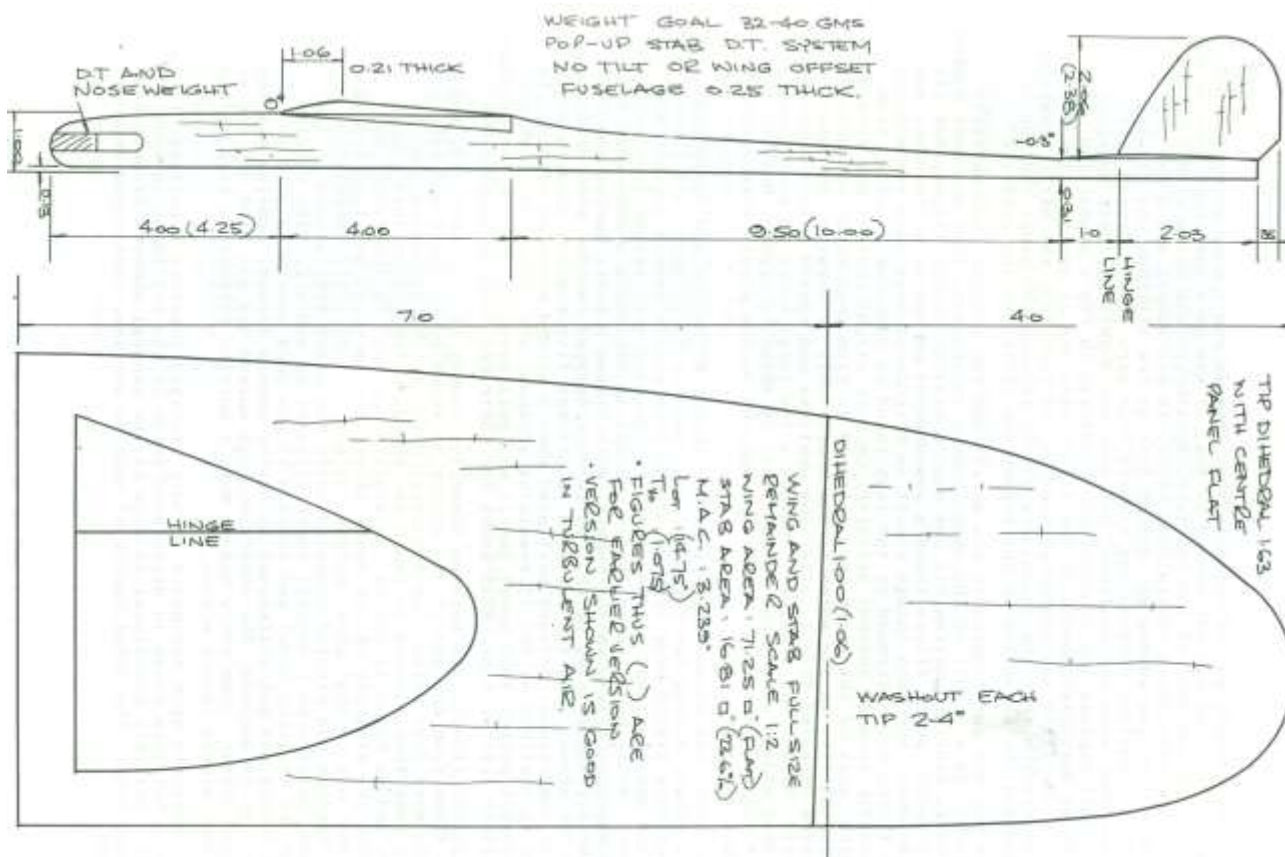 WEIGHT GOAL 32-40 GMS
POP-UP STAB D.T. SYSTEM
NO TILT OR WING OFFSET
FUSELAGE 0.25 THICK.
1.06
0.21 THICK
D.T AND
NOSEWEIGHT
0°
1.00
(2.38)
-0.3°
0.31
4.00 (4.25)
4.00
9.50 (10.00)
1.0
2.03
HINGE
LINE
7.0
4.0
TIP DIHEDRAL 1.63
WITH CENTRE
PANEL FLAT
DIHEDRAL 1.00 (1.06)
WING AND STAB FULLSIZE
REMAINDER SCALE 1:2
WING AREA: 71.25 □" (FLAT)
STAB AREA: 16.81 □" (23.6%)
M.A.C.: 3.239"
(14.75")
(1.075)
• FIGURES THUS ( ) ARE
FOR EARLIER VERSION
• VERSION SHOWN IS GOOD
IN TURBULENT AIR.
HINGE
LINE
WASHOUT EACH
TIP 2-4°